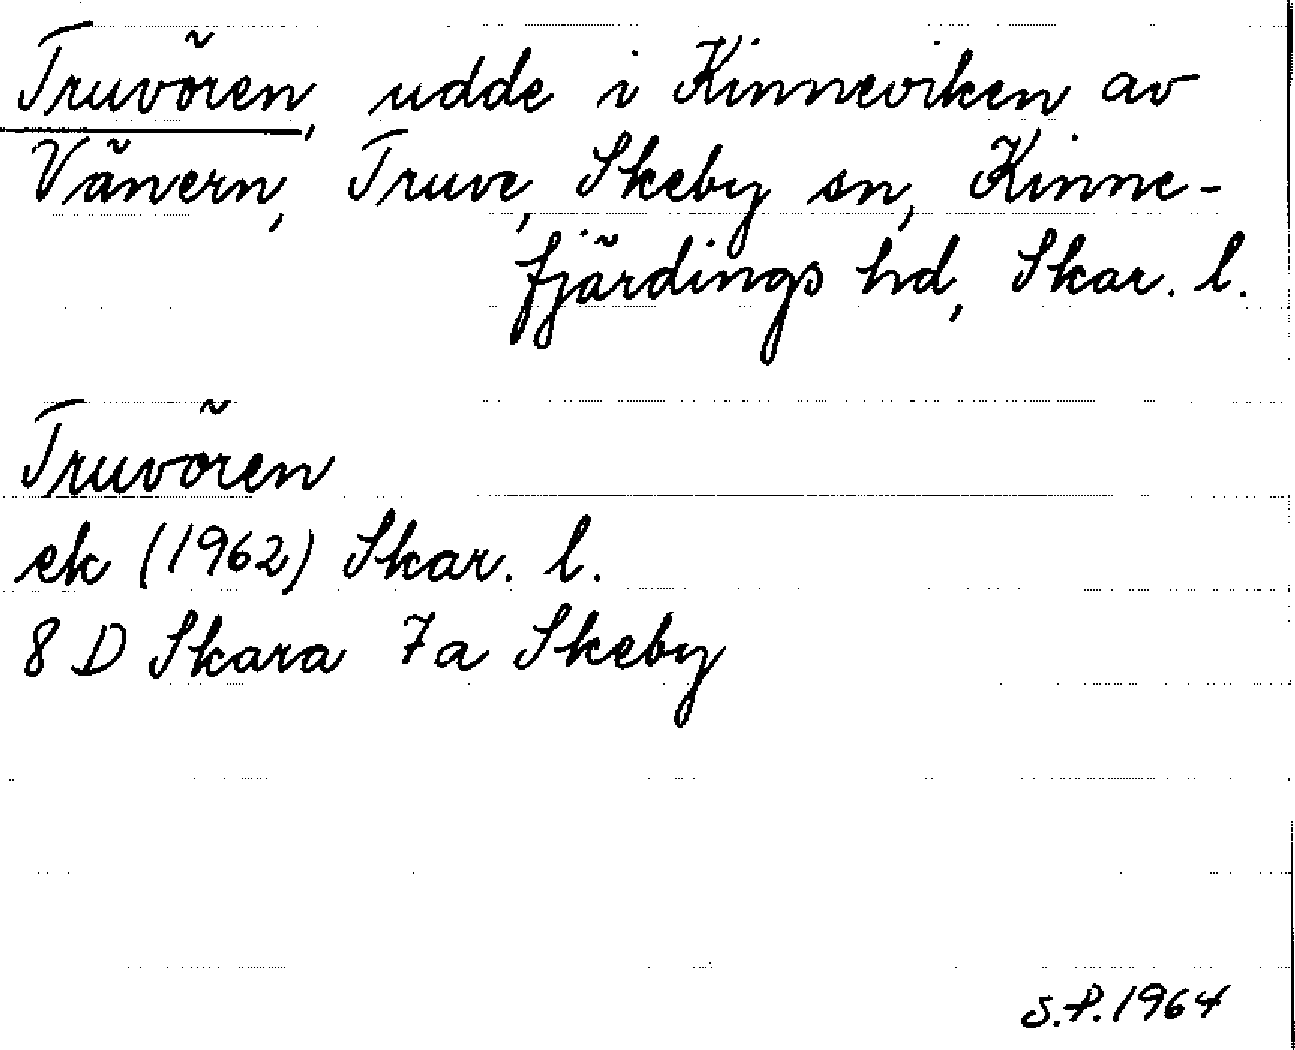 Truvören, udde i Kinneviken av
Vänern, Truve, Skeby sn, Kinne-
fjärdings hd, Skar. l.
Truvören
ek (1962) Skar. l.
8 D Skara 7a Skeby
S.P. 1964